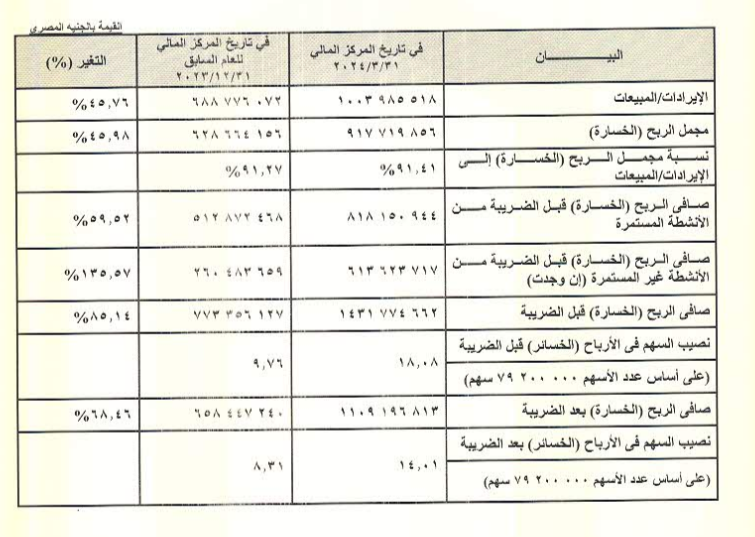 القيمة بالجنيه المصرى
البيـــــــــان
في تاريخ المركز المالي
٢٠٢٤/٣/٣١
في تاريخ المركز المالي
للعام السابق
٢٠٢٣/١٢/٣١
التغير (%)
الإيرادات/المبيعات
١٠٠٣ ٩٨٥ ٥١٨
٦٨٨ ٧٧٦ ٠٧٢
%٤٥,٧٦
مجمل الربح (الخسارة)
٩١٧ ٧١٩ ٨٥٦
٦٢٨ ٦٦٤ ١٥٦
%٤٥,٩٨
نسـبة مجمـل الـربح (الخسـارة) إلـى
الإيرادات/المبيعات
%٩١,٤١
%٩١,٢٧
صـافى الـربح (الخسـارة) قبـل الضـريبة مـن
الأنشطة المستمرة
٨١٨ ١٥٠ ٩٤٤
٥١٢ ٨٧٢ ٤٦٨
%٥٩,٥٢
صـافى الـربح (الخسـارة) قبـل الضـريبة مـن
الأنشطة غير المستمرة (إن وجدت)
٦١٣ ٦٢٣ ٧١٧
٢٦٠ ٤٨٣ ٦٥٩
%١٣٥,٥٧
صافى الربح (الخسارة) قبل الضريبة
١٤٣١ ٧٧٤ ٦٦٢
٧٧٣ ٣٥٦ ١٢٧
%٨٥,١٤
نصيب السهم فى الأرباح (الخسائر) قبل الضريبة
(على أساس عدد الأسهم ٠٠٠ ٢٠٠ ٧٩ سهم)
١٨,٠٨
٩,٧٦
صافى الربح (الخسارة) بعد الضريبة
١١٠٩ ١٩٦ ٨١٣
٦٥٨ ٤٤٧ ٢٤٠
%٦٨,٤٦
نصيب السهم فى الأرباح (الخسائر) بعد الضريبة
(على أساس عدد الأسهم ٠٠٠ ٢٠٠ ٧٩ سهم)
١٤,٠١
٨,٣١